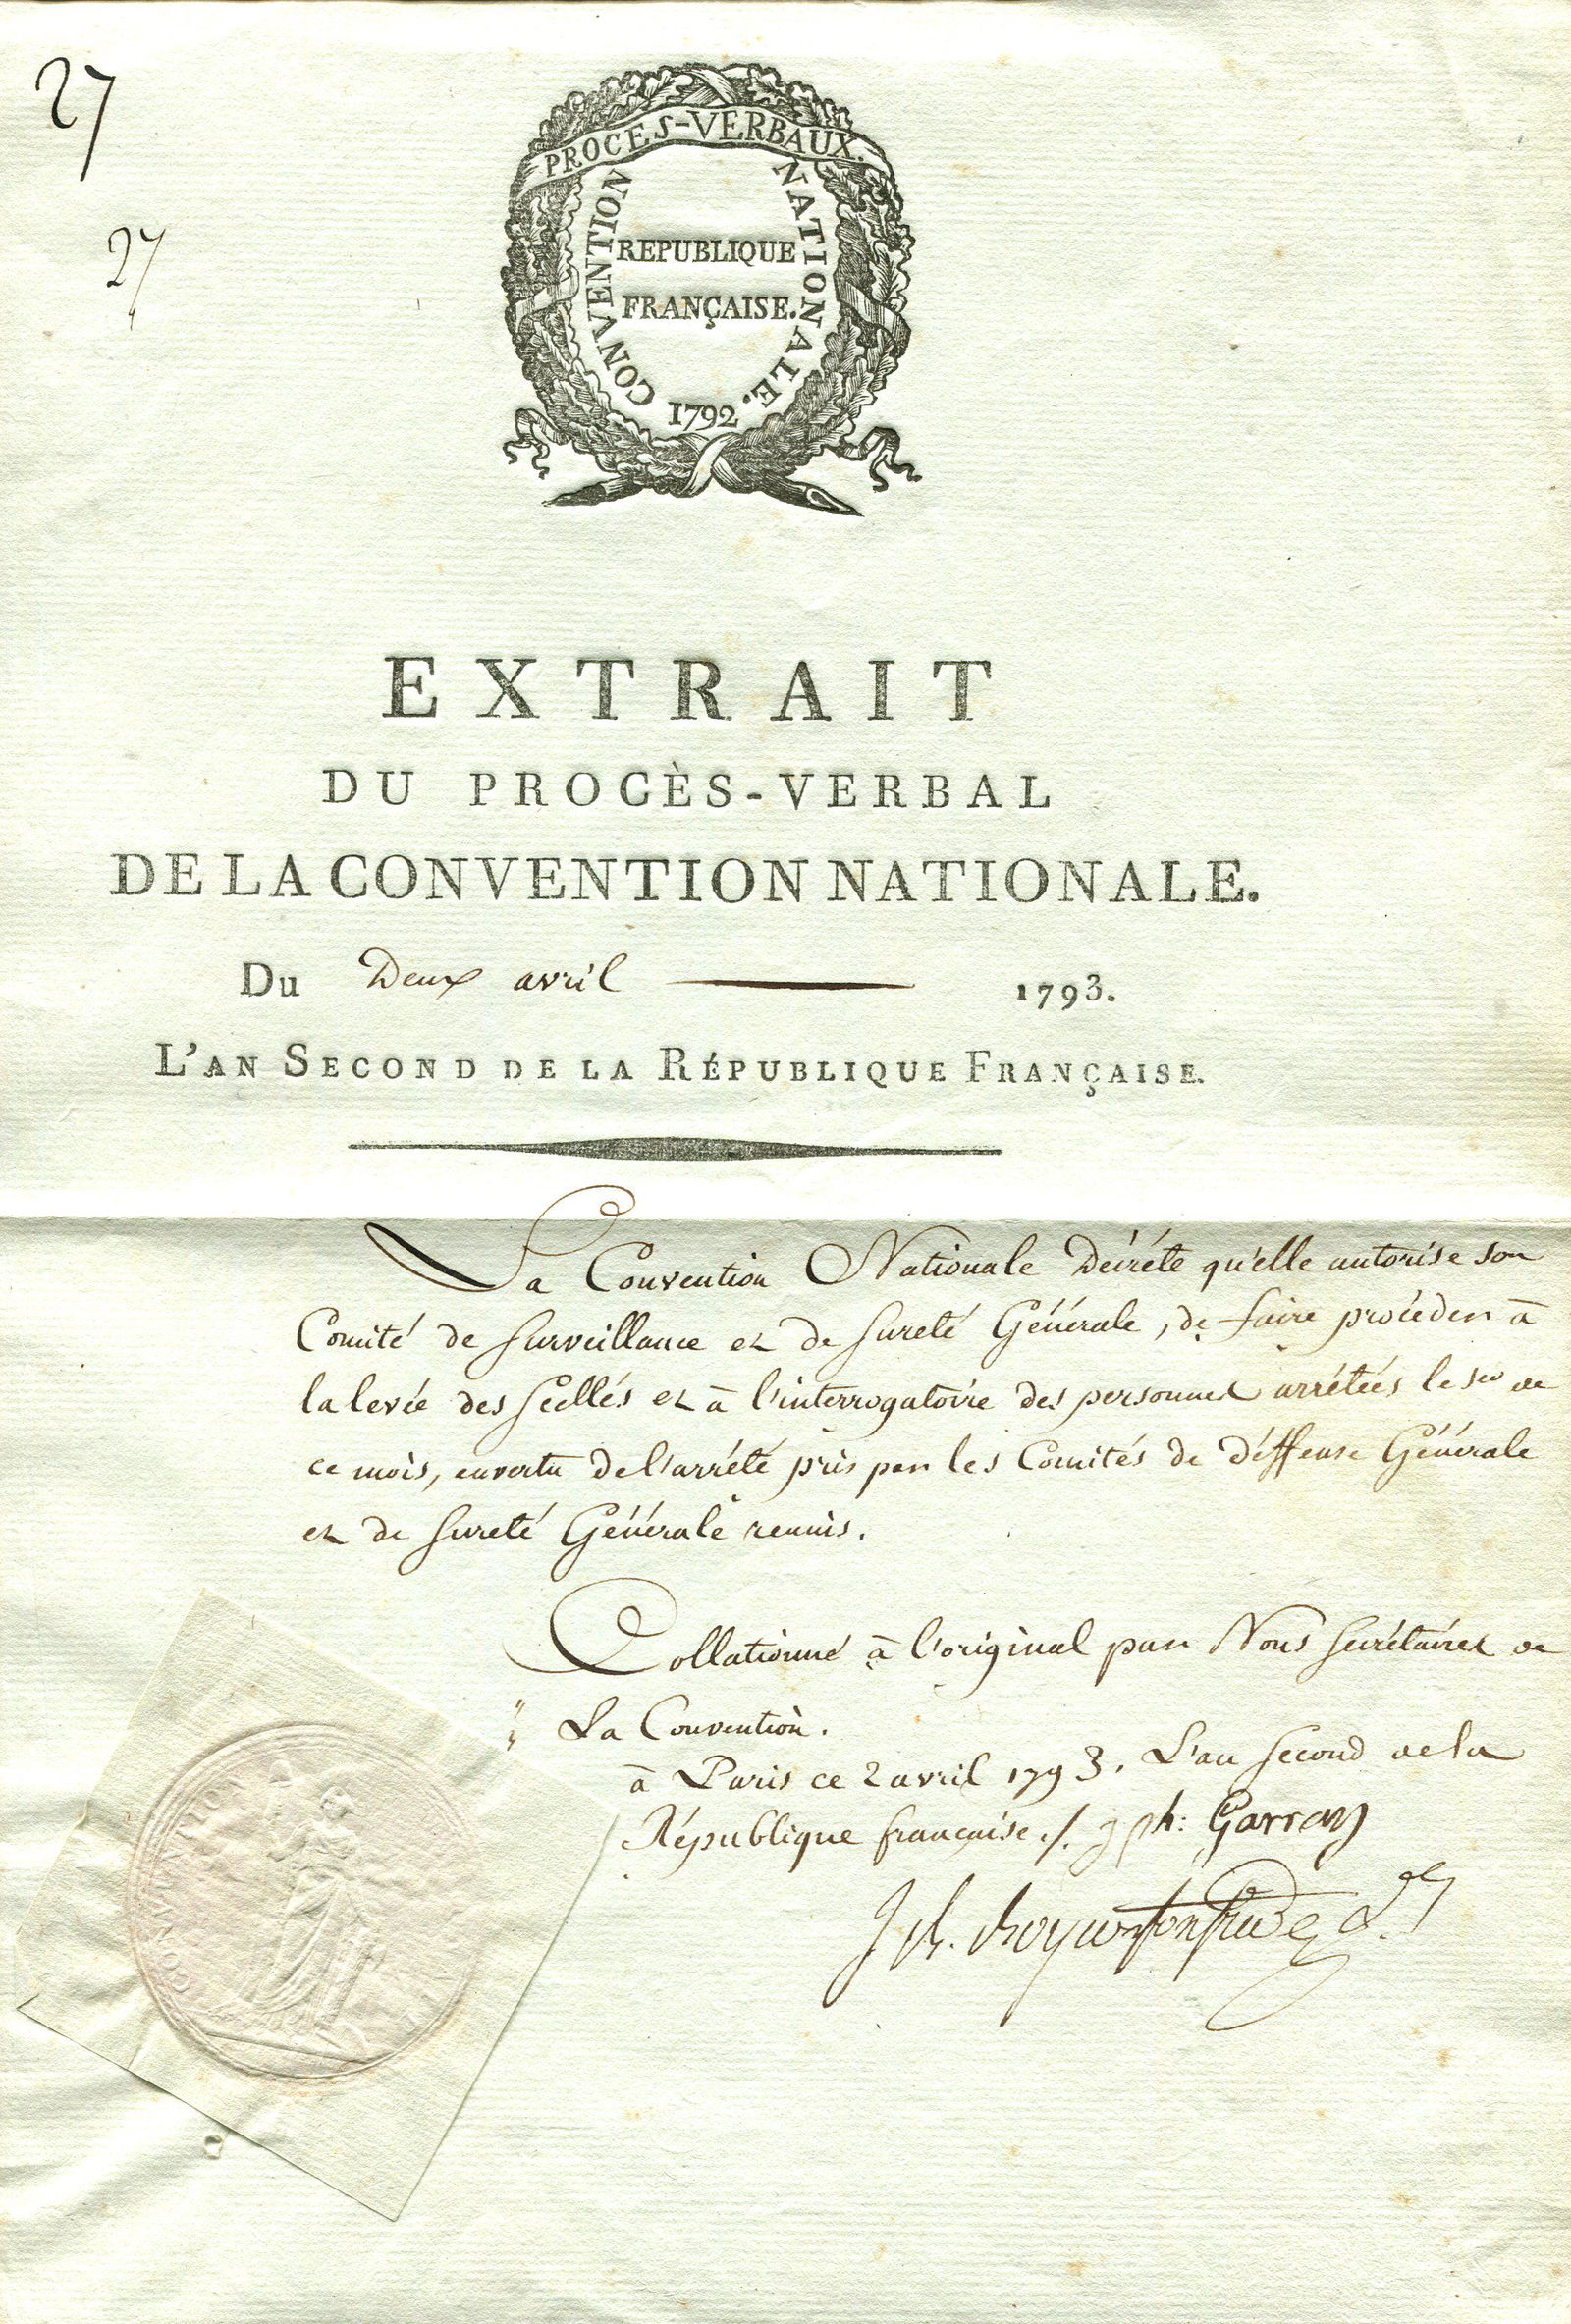 27
27
PROCES-VERBAUX.
CONVENTION NATIONALE.
REPUBLIQUE
FRANÇAISE.
1792.
EXTRAIT
DU PROCÈS-VERBAL
DE LA CONVENTION NATIONALE.
Du Deux avril 1793.
L'AN SECOND DE LA RÉPUBLIQUE FRANÇAISE.
La Convention Nationale Décréte qu'elle autorise son
Comité de surveillance et de sureté Générale, de faire procéder à
la levée des scellés et à l'interrogatoire des personnes arrêtées le 1er de
ce mois, en vertu de l'arrêté pris par les Comités de déffense Générale
et de sureté Générale reunis.
Collationné à l'original par Nous secrétaires de
La Convention.
à Paris ce 2 avril 1793. L'an second de la
République française ./. J ph: Garran
J. B. Boyerfonfrède
CONVENTION